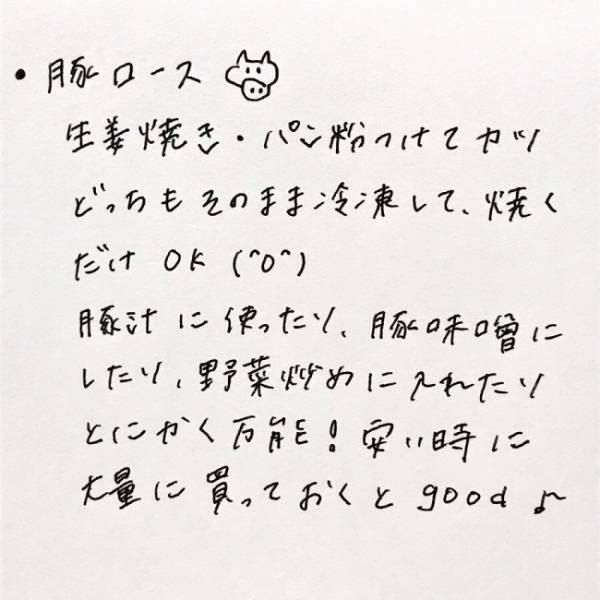 ・豚ロース
生姜焼き・パン粉つけてカツ
どっちもそのまま冷凍して、焼く
だけ OK (^O^)
豚汁に使ったり、豚味噌に
したり、野菜炒めに入れたり
とにかく万能!安い時に
大量に買っておくと good♪